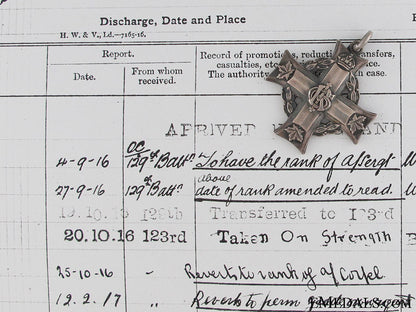 Discharge, Date and Place
H. W. & V., Ld.—7165-16.
Report.
Date.
From whom received.
Record of promotions, reductions, transfers,
casualties, etc.
The authority in case.
ARRIVED AND
4-9-16 OC 129th Battn To have the rank of A/Sergt
above
27-9-16 129th Battn date of rank amended to read.
19.10.16 129th Transferred to 123rd
20.10.16 123rd Taken On Strength
25-10-16 - Reverts to rank of A/Corpl
12.2.17 " Reverts to perm
EMEDALS.COM